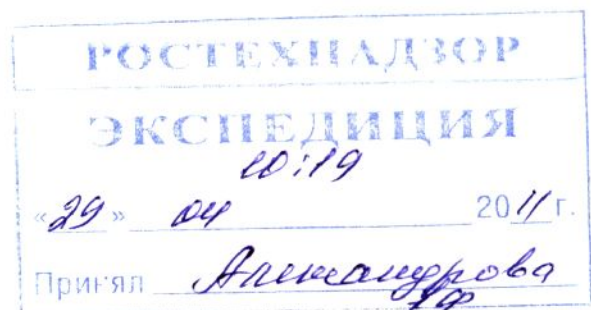 РОСТЕХНАДЗОР
ЭКСПЕДИЦИЯ
10:19
«29» 04 2011 г.
Принял Александрова